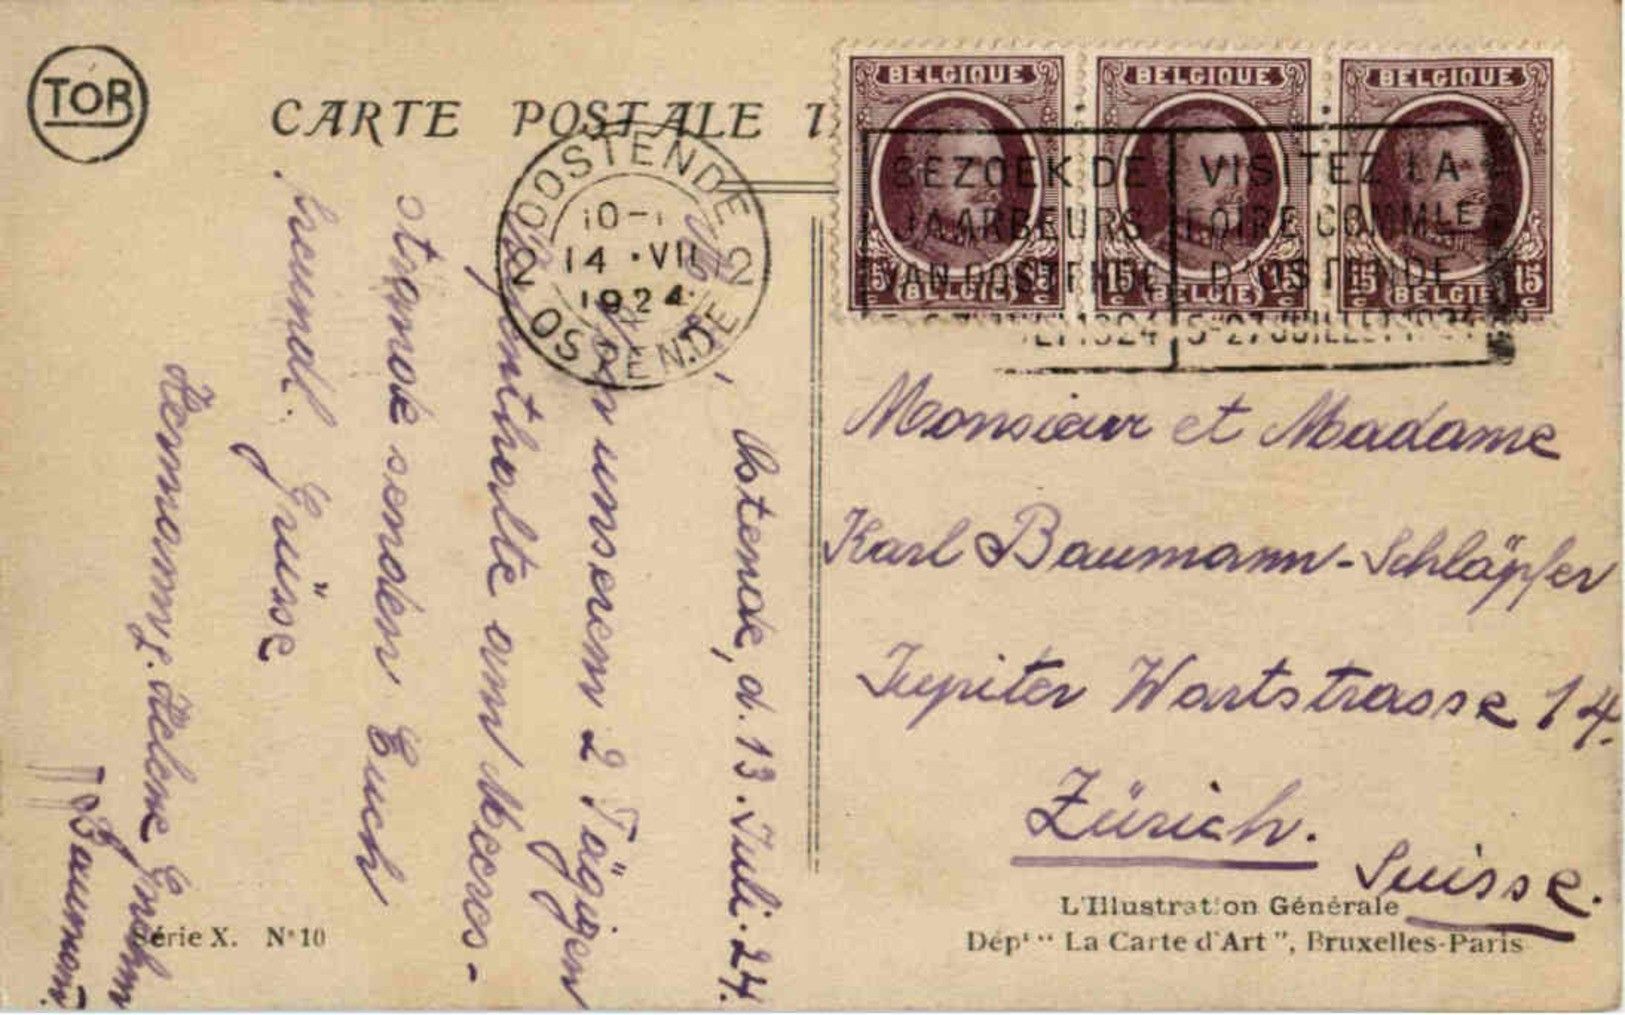 TOR
CARTE POSTALE
BELGIQUE
BELGIQUE
BELGIQUE
15 (BELGIE) 15
15 (BELGIE) 15
15 (BELGIE) 15
OOSTENDE
10-
14 · VII
1924
2 2
OSTENDE
BEZOEK DE
JAARBEURS
VAN OOSTENDE
1924
VISITEZ LA
FOIRE COMMLE
D'OSTENDE
5-27 JUILLET 1924
Ostende, d. 13. Juli. 24.
unserem 2 Tägigen
enthalte am Meeres-
strande senden Euch
freundl. Grüsse
Hermann, Helene
Baumann
Monsieur et Madame
Karl Baumann-Schläpfer
Jupiter Wartstrasse 14.
Zürich.
Suisse.
Série X. N° 10
L'Illustration Générale
Dépt " La Carte d'Art ", Bruxelles-Paris